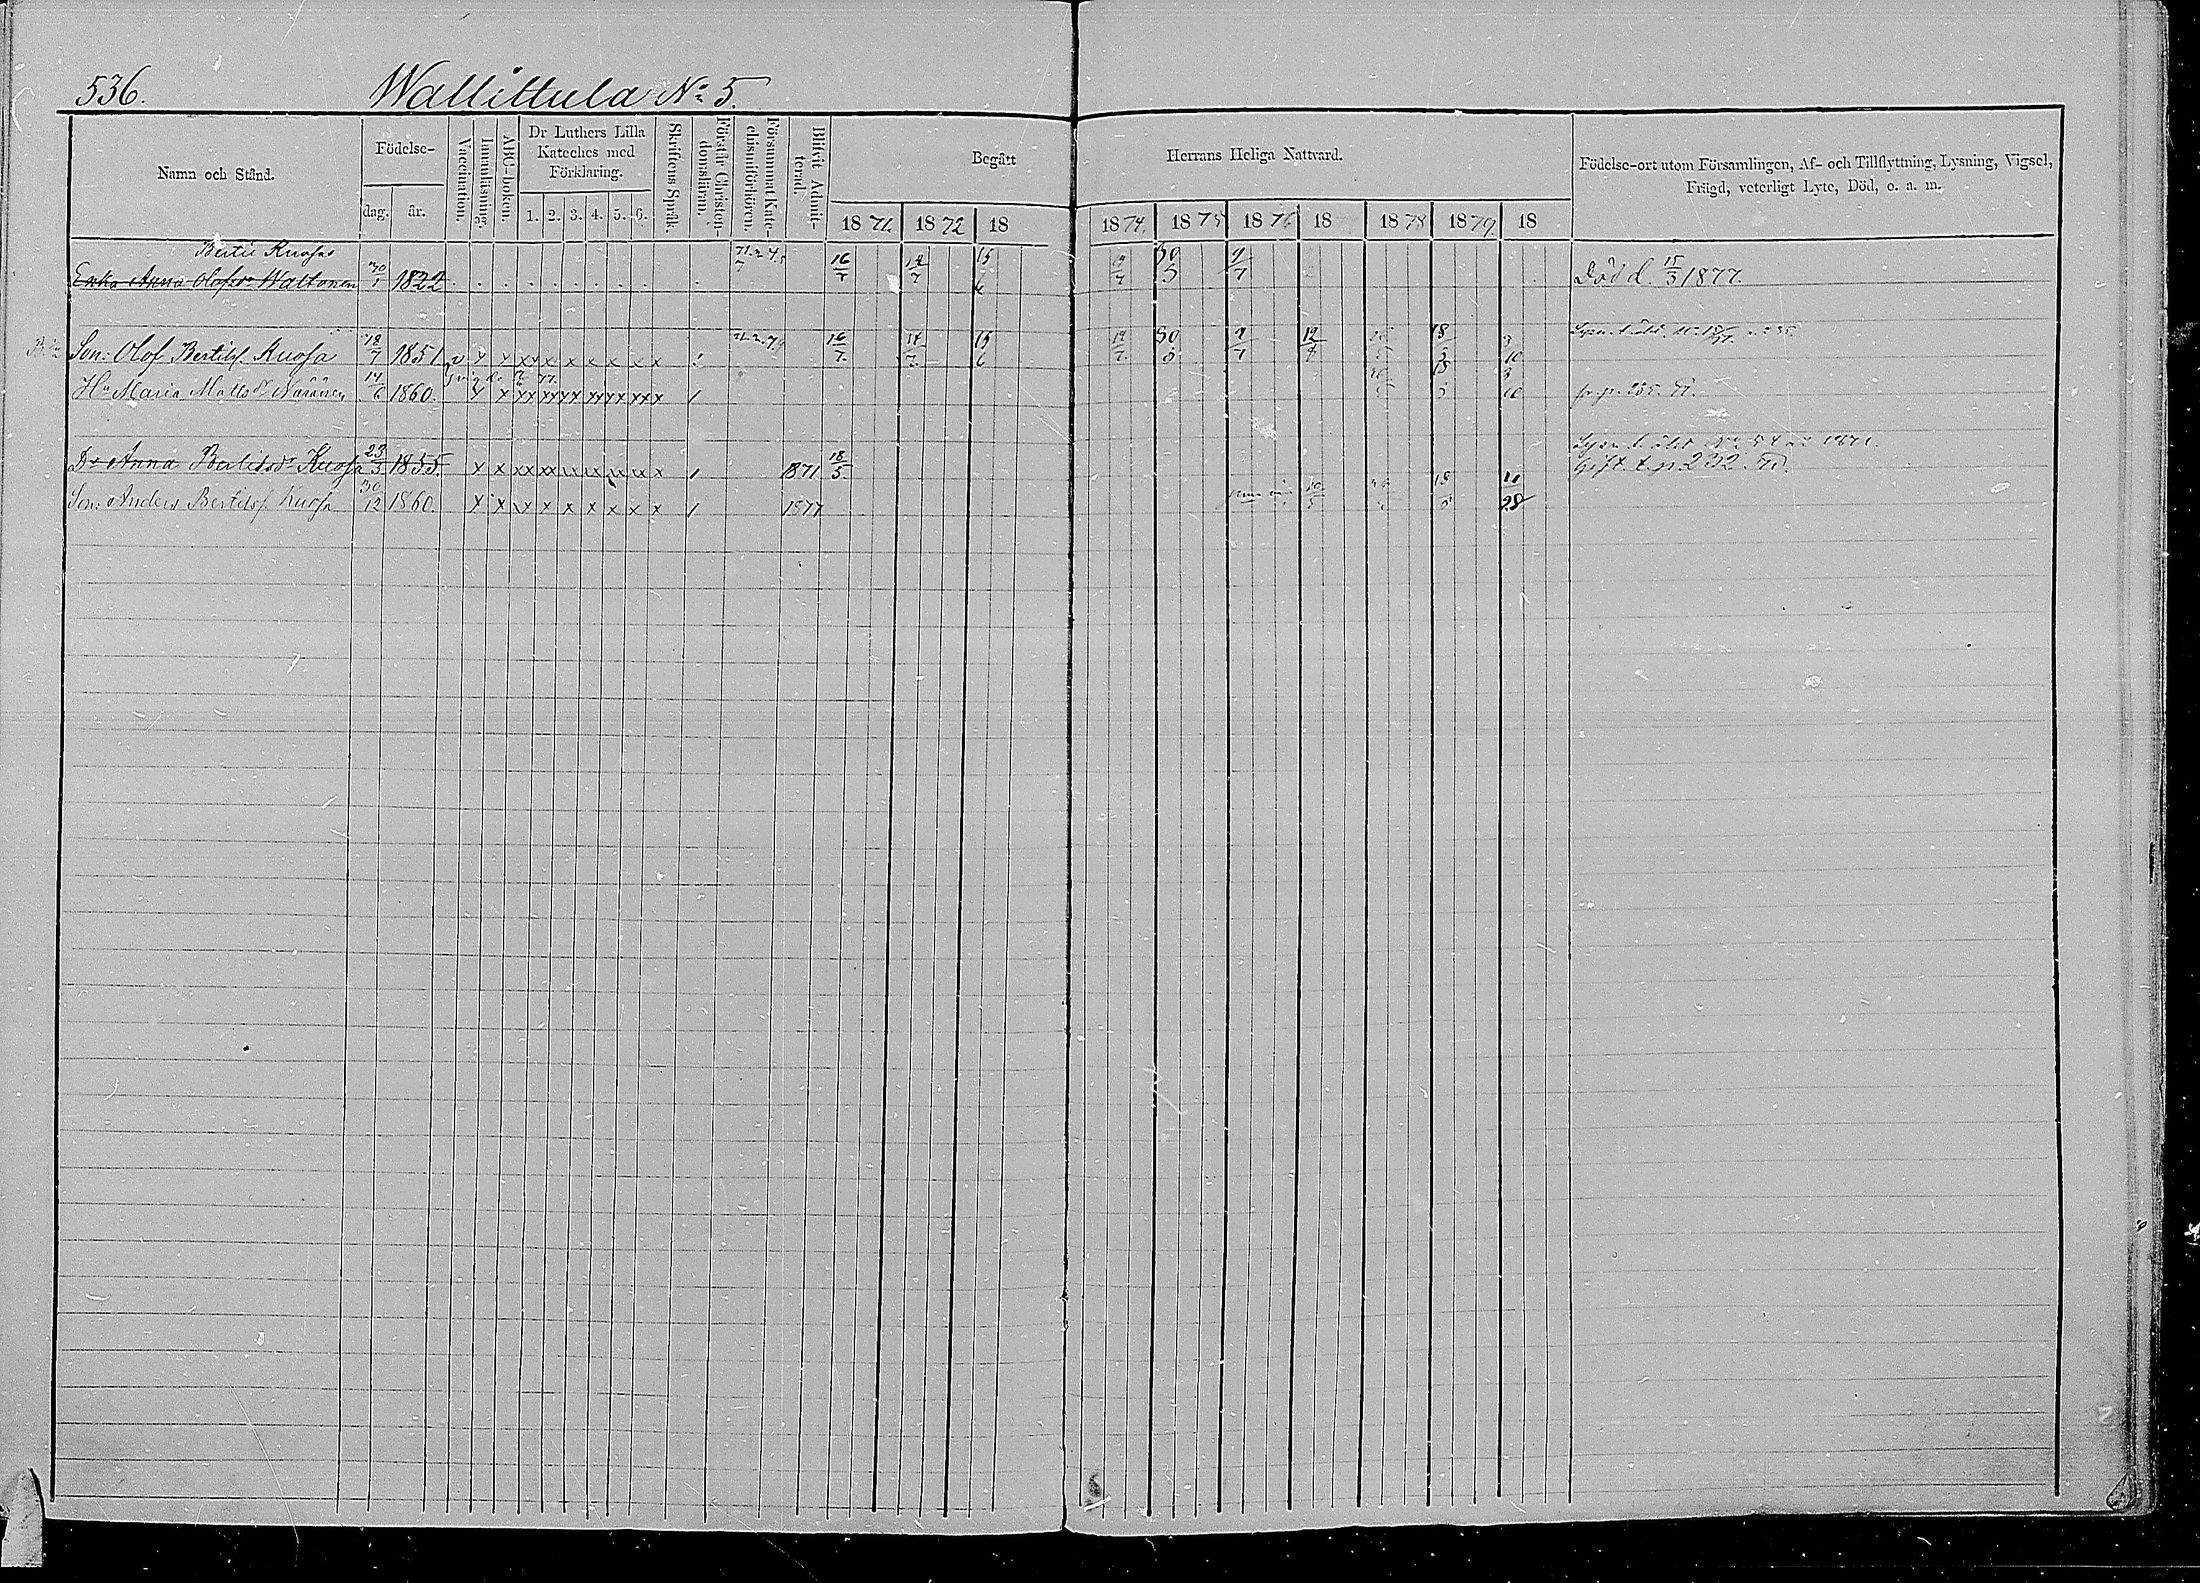 536. Wallittula No 5.
Namn och Stånd.
Födelse-
dag. år.
Vaccination.
Innanläsning.
ABC-boken.
Dr Luthers Lilla
Kateches med
Förklaring.
1. 2. 3. 4. 5. 6.
Skriftens Språk.
Förstår Christen-
domsläran.
Försummat Kate-
chismiförhören.
Blifvit Admit-
terad.
Begått Herrans Heliga Nattvard.
1871. 1872 18 1874. 1875 1876 18 1878 1879. 18
Födelse-ort utom Församlingen, Af- och Tillflyttning, Lysning, Vigsel,
Frägd, veterligt Lyte, Död, o. a. m.
Bertil Kuosas
Enka Anna Olofsdr Waltonen 30/1 1822 16/7 14/7 15/6 30/5 9/7 Död d. 15/3 1877.
Son: Olof Bertilsf. Kuosa 18/7 1851 v x x xx x x x x x x 16/7 15/6 30/5 9/7 12/7 18/5 3/10
Hu Maria Mattsdr 14/6 1860. x x xx xx xx xx xx xx x 18/5 3/10
Dr Anna Bertilsdr Kuosa 23/3 1855. x x xx xx 1871 18/5 Gift. t. p. 232.
Son: Anders Bertilsf. Kuosa 30/12 1860. x x x x x x x x x 1877 18